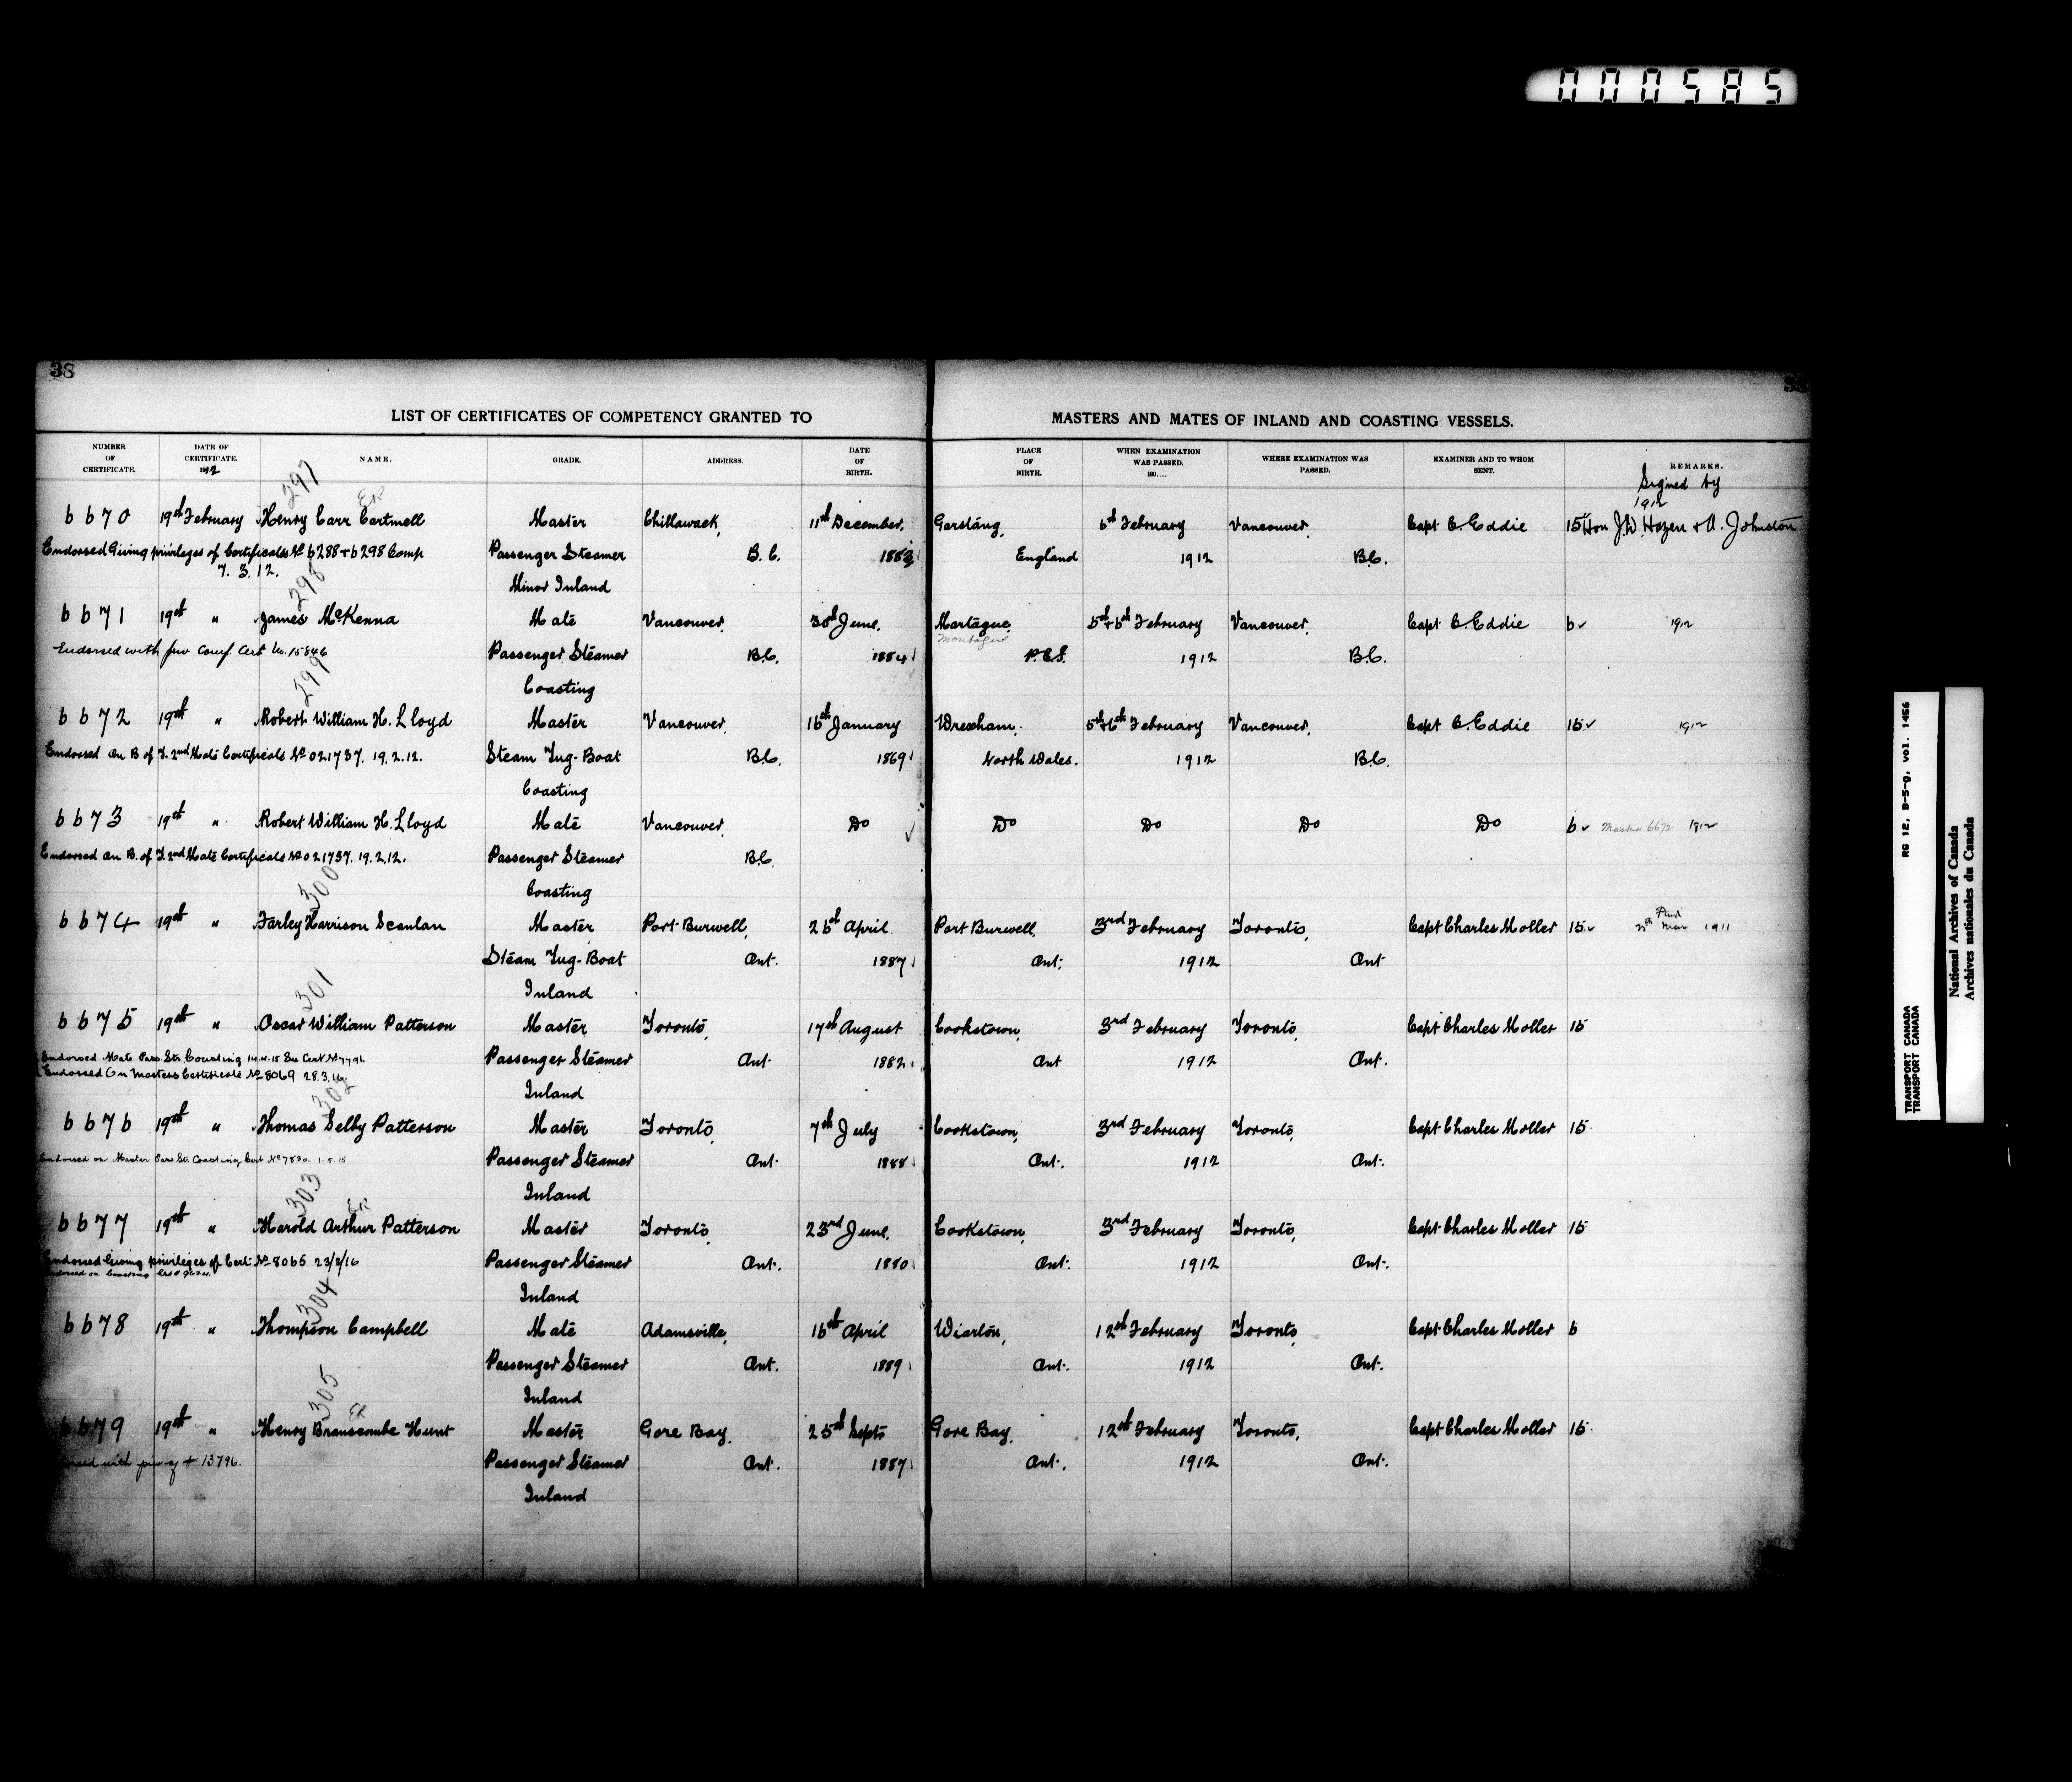 000585
38
LIST OF CERTIFICATES OF COMPETENCY GRANTED TO MASTERS AND MATES OF INLAND AND COASTING VESSELS.
NUMBER OF CERTIFICATE. DATE OF CERTIFICATE. 1912 NAME. GRADE. ADDRESS. DATE OF BIRTH. PLACE OF BIRTH. WHEN EXAMINATION WAS PASSED. 190.... WHERE EXAMINATION WAS PASSED. EXAMINER AND TO WHOM SENT. REMARKS.
Signed by
297 1912
6670 19th February Henry Carr Cartmell Master Chillawack, 11th December, Garstang, 6th February Vancouver, Capt C. Eddie 15 Hon J.D. Hazen & A. Johnston
Endorsed Giving privileges of Certificates No 6288 + 6298 Comp Passenger Steamer B.C. 1883 England 1912 B.C.
7. 3. 12. Minor Inland
298
6671 19th " James McKenna Mate Vancouver, 30th June, Martague, 5th+6th February Vancouver, Capt C. Eddie 6 1912
Montague
Endorsed with priv Comp. Cert No. 15846 Passenger Steamer B.C. 1884 P.E.I. 1912 B.C.
Coasting
299
6672 19th " Robert William H. Lloyd Master Vancouver, 16th January Wrexham, 5th+6th February Vancouver, Capt C. Eddie 15 1912
Endorsed On B of T. 2nd Mate Certificate No 021737. 19.2.12. Steam Tug-Boat B.C. 1869 North Wales. 1912 B.C.
Coasting
6673 19th " Robert William H. Lloyd Mate Vancouver, Do Do Do Do Do 6 Master 6672 1912
Endorsed on B. of T. 2nd Mate Certificate No 021737. 19.2.12. Passenger Steamer B.C.
Coasting
300
6674 19th " Farley Harrison Scanlan Master Port Burwell, 26th April Port Burwell, 3rd February Toronto, Capt Charles Moller 15 Mar 1911
Steam Tug-Boat Ont. 1887 Ont. 1912 Ont
Inland
301
6675 19th " Oscar William Patterson Master Toronto, 17th August Cookstown, 3rd February Toronto, Capt Charles Moller 15
Endorsed Mate Pass. Str. Coasting 14.4.15 See Cert No 7796 Passenger Steamer Ont 1882 Ont 1912 Ont.
Endorsed On Masters Certificate No 8069 28.3.16
Inland
302
6676 19th " Thomas Selby Patterson Master Toronto, 7th July Cookstown, 3rd February Toronto, Capt Charles Moller 15
Endorsed on Master Pass Str Coasting Cert No 7830. 1.5.15 Passenger Steamer Ont. 1888 Ont. 1912 Ont.
Inland
303
6677 19th " Harold Arthur Patterson Master Toronto, 23rd June, Cookstown, 3rd February Toronto, Capt Charles Moller 15
Endorsed Giving privileges of Cert. No 8065 23/3/16 Passenger Steamer Ont. 1880 Ont. 1912 Ont.
Endorsed on Coasting
Inland
304
6678 19th " Thompson Campbell Mate Adamsville, 16th April Wiarton, 12th February Toronto, Capt Charles Moller 6
Passenger Steamer Ont. 1889 Ont. 1912 Ont.
Inland
305
6679 19th " Henry Branscombe Hunt Master Gore Bay, 25th Septo Gore Bay, 12th February Toronto, Capt Charles Moller 15
with 13796. Passenger Steamer Ont. 1887 Ont. 1912 Ont.
Inland
RG 12, B-5-g, vol. 1456
TRANSPORT CANADA
TRANSPORT CANADA
National Archives of Canada
Archives nationales du Canada